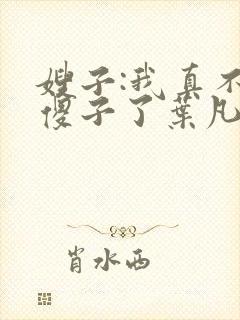 嫂子:我真不
傻子了葉凡
肖水西